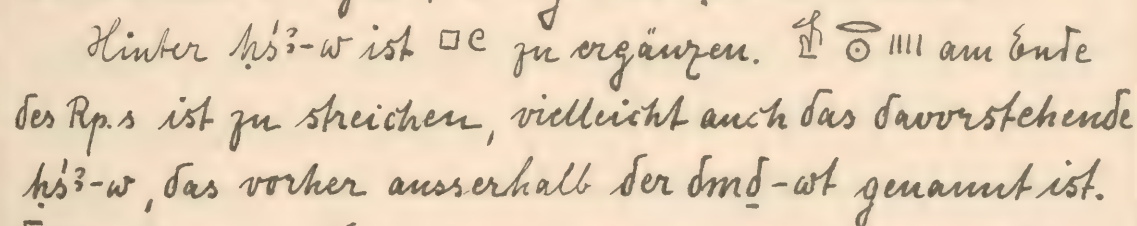 Hinter ḥśꜣ-w ist 𓊪𓏲 zu ergänzen. 𓂋𓇳 IIII am Ende
des Rp.s ist zu streichen, vielleicht auch das davorstehende
ḥśꜣ-w, das vorher ausserhalb der dmḏ-wt genannt ist.